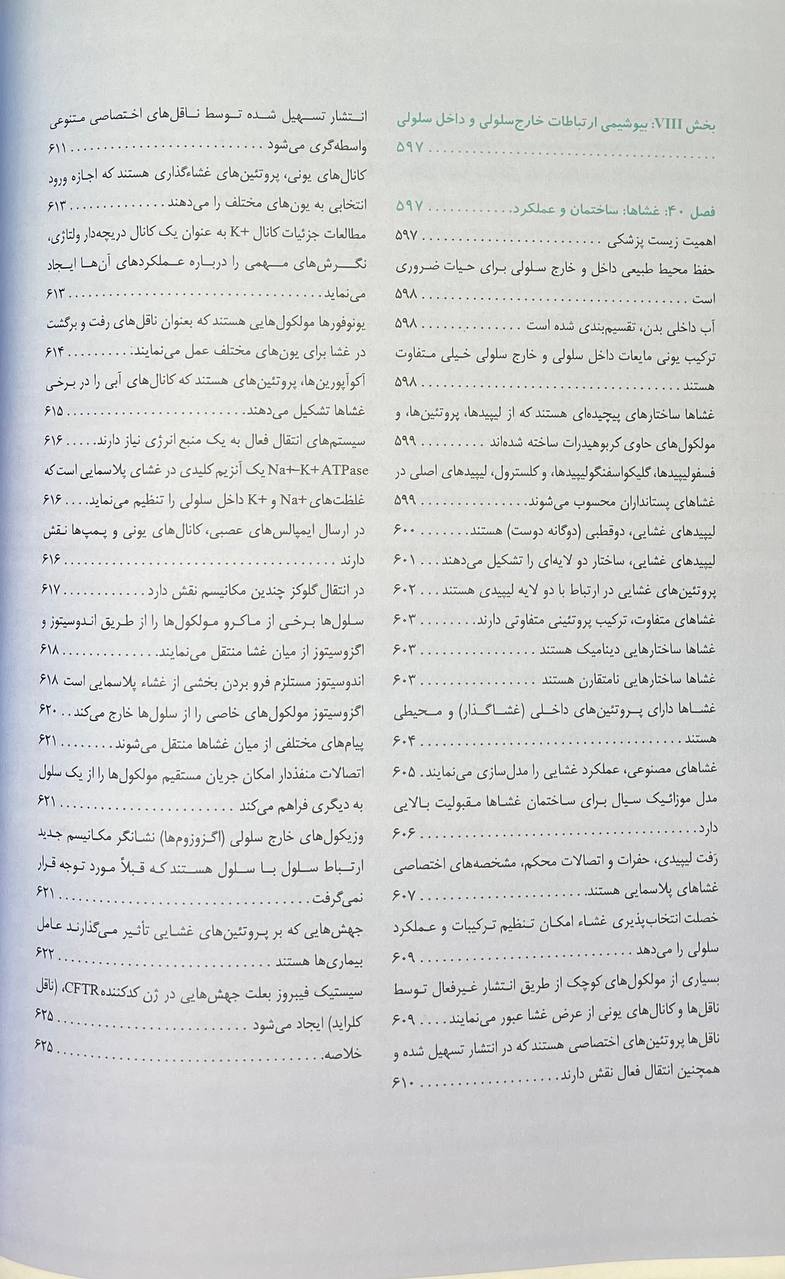 بخش VIII: بیوشیمی ارتباطات خارج‌سلولی و داخل سلولی
............................................ ۵۹۷
فصل ۴۰: غشاها: ساختمان و عملکرد............ ۵۹۷
اهمیت زیست پزشکی ........................... ۵۹۷
حفظ محیط طبیعی داخل و خارج سلولی برای حیات ضروری
است ................................... ۵۹۸
آب داخلی بدن، تقسیم‌بندی شده است ............. ۵۹۸
ترکیب یونی مایعات داخل سلولی و خارج سلولی خیلی متفاوت
هستند ................................... ۵۹۸
غشاها ساختارهای پیچیده‌ای هستند که از لیپیدها، پروتئین‌ها، و
مولکول‌های حاوی کربوهیدرات ساخته شده‌اند ......... ۵۹۹
فسفولیپیدها، گلیکواسفنگولیپیدها، و کلسترول، لیپیدهای اصلی در
غشاهای پستانداران محسوب می‌شوند............... ۵۹۹
لیپیدهای غشایی، دوقطبی (دوگانه دوست) هستند........ ۶۰۰
لیپیدهای غشایی، ساختار دو لایه‌ای را تشکیل می‌دهند ... ۶۰۱
پروتئین‌های غشایی در ارتباط با دو لایه لیپیدی هستند ... ۶۰۲
غشاهای متفاوت، ترکیب پروتئینی متفاوتی دارند........ ۶۰۳
غشاها ساختارهایی دینامیک هستند ............... ۶۰۳
غشاها ساختارهایی نامتقارن هستند ............... ۶۰۳
غشاها دارای پروتئین‌های داخلی (غشاگذار) و محیطی
هستند................................... ۶۰۴
غشاهای مصنوعی، عملکرد غشایی را مدل‌سازی می‌نمایند . ۶۰۵
مدل موزائیک سیال برای ساختمان غشاها مقبولیت بالایی
دارد................................... ۶۰۶
رَفت لیپیدی، حفرات و اتصالات محکم، مشخصه‌های اختصاصی
غشاهای پلاسمایی هستند....................... ۶۰۷
خصلت انتخاب‌پذیری غشاء امکان تنظیم ترکیبات و عملکرد
سلولی را می‌دهد ........................... ۶۰۹
بسیاری از مولکول‌های کوچک از طریق انتشار غیرفعال توسط
ناقل‌ها و کانال‌های یونی از عرض غشا عبور می‌نمایند .... ۶۰۹
ناقل‌ها پروتئین‌های اختصاصی هستند که در انتشار تسهیل شده و
همچنین انتقال فعال نقش دارند................... ۶۱۰
انتشار تسهیل شده توسط ناقل‌های اختصاصی متنوعی
واسطه‌گری می‌شود ........................... ۶۱۱
کانال‌های یونی، پروتئین‌های غشاءگذاری هستند که اجازه ورود
انتخابی به یون‌های مختلف را می‌دهند ............. ۶۱۳
مطالعات جزئیات کانال K+ به عنوان یک کانال دریچه‌دار ولتاژی،
نگرش‌های مهمی را درباره عملکردهای آن‌ها ایجاد
می‌نماید................................... ۶۱۳
یونوفورها مولکول‌هایی هستند که بعنوان ناقل‌های رفت و برگشت
در غشا برای یون‌های مختلف عمل می‌نمایند.......... ۶۱۴
آکوآپورین‌ها، پروتئین‌های هستند که کانال‌های آبی را در برخی
غشاها تشکیل می‌دهند....................... ۶۱۵
سیستم‌های انتقال فعال به یک منبع انرژی نیاز دارند..... ۶۱۶
Na+–K+ATPase یک آنزیم کلیدی در غشای پلاسمایی است که
غلظت‌های Na+ و K+ داخل سلولی را تنظیم می‌نماید.... ۶۱۶
در ارسال ایمپالس‌های عصبی، کانال‌های یونی و پمپ‌ها نقش
دارند ................................... ۶۱۶
در انتقال گلوکز چندین مکانیسم نقش دارد............ ۶۱۷
سلول‌ها برخی از ماکرو مولکول‌ها را از طریق اندوسیتوز و
اگزوسیتوز از میان غشا منتقل می‌نمایند............. ۶۱۸
اندوسیتوز مستلزم فرو بردن بخشی از غشاء پلاسمایی است ۶۱۸
اگزوسیتوز مولکول‌های خاصی را از سلول‌ها خارج می‌کند.. ۶۲۰
پیام‌های مختلفی از میان غشاها منتقل می‌شوند........ ۶۲۱
اتصالات منفذدار امکان جریان مستقیم مولکول‌ها را از یک سلول
به دیگری فراهم می‌کند ....................... ۶۲۱
وزیکول‌های خارج سلولی (اگزوزوم‌ها) نشانگر مکانیسم جدید
ارتباط سلول با سلول هستند که قبلاً مورد توجه قرار
نمی‌گرفت................................... ۶۲۱
جهش‌هایی که بر پروتئین‌های غشایی تأثیر می‌گذارند عامل
بیماری‌ها هستند ........................... ۶۲۲
سیستیک فیبروز بعلت جهش‌هایی در ژن کدکننده CFTR، (ناقل
کلراید) ایجاد می‌شود ....................... ۶۲۵
خلاصه................................... ۶۲۵